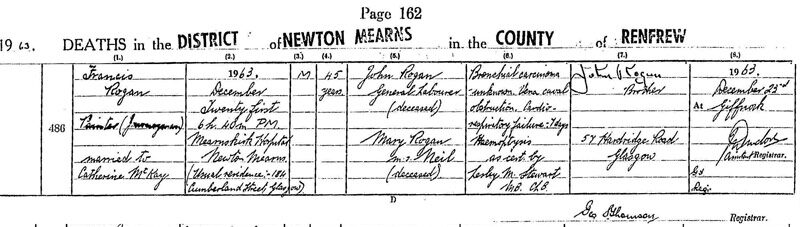 Page 162
1963. DEATHS in the DISTRICT of NEWTON MEARNS in the COUNTY of RENFREW
(1.) (2.) (3.) (4.) (5.) (6.) (7.) (8.)
486
Francis
Rogan
Painter (Journeyman)
married to
Catherine McKay
1963.
December
Twenty first
6 h. 40 m. PM
Mearnskirk Hospital
Newton Mearns.
(Usual residence:- 184
Cumberland Street, Glasgow)
M
45
years
John Rogan
General Labourer
(deceased)
Mary Rogan
m.s. Neil
(deceased)
Bronchial carcinoma
unknown. Vena caval
obstruction. Cardio-
respiratory failure:- 7 days
Haemoptysis
as cert. by
Lesley M. Stewart
M.B. Ch.B.
John Rogan
Brother
57 Hardridge Road
Glasgow
1963.
December 23rd
At Giffnock
Assistant Registrar.
Geo S Thomson Registrar.
D